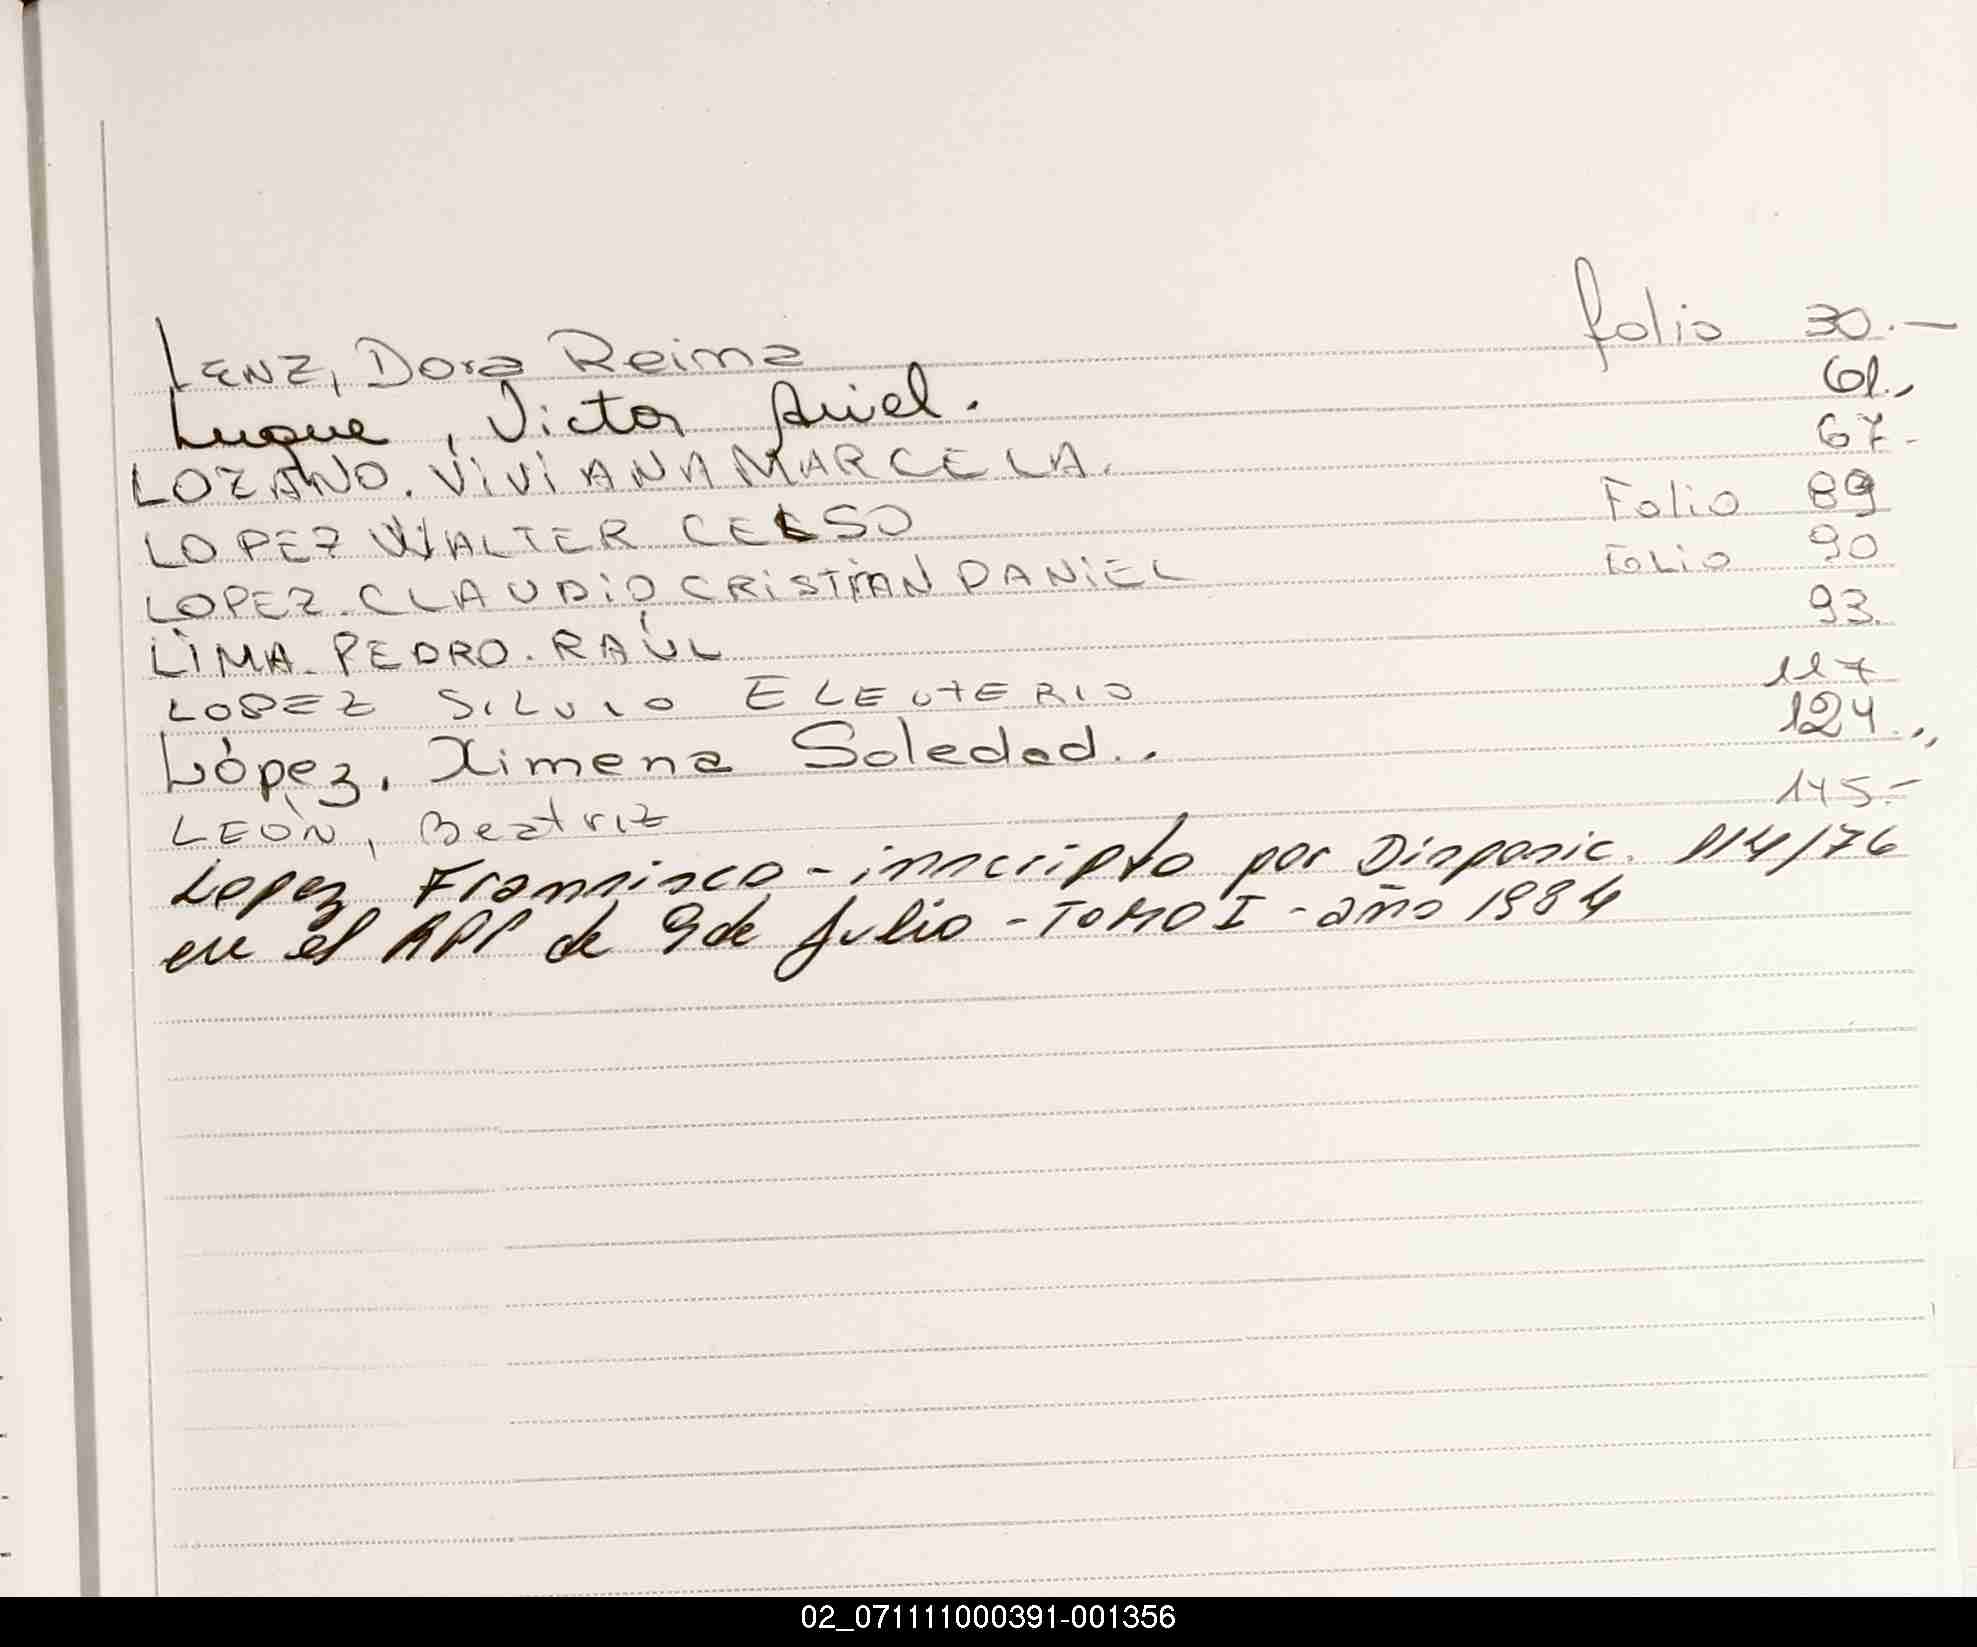 Lenz, Dora Reina folio 30.-
Luque, Victor Ariel. 61.,
LOZANO. ViViANA MARCELA. 67.-
LOPEZ WALTER CELSO Folio 89
LOPEZ. CLAUDiO CRiSTiAN DANiEL FoLio 90
LiMA. PEDRO. RAÚL 93.
LOPEZ SILVIO ELEUTERIO 117
López, Ximena Soledad.. 124.,,
LEÓN, Beatriz 145.-
Lopez Francisco - inscripto por Disposic. 114/76
en el RPP de 9 de Julio - TOMO I - año 1984
02_071111000391-001356